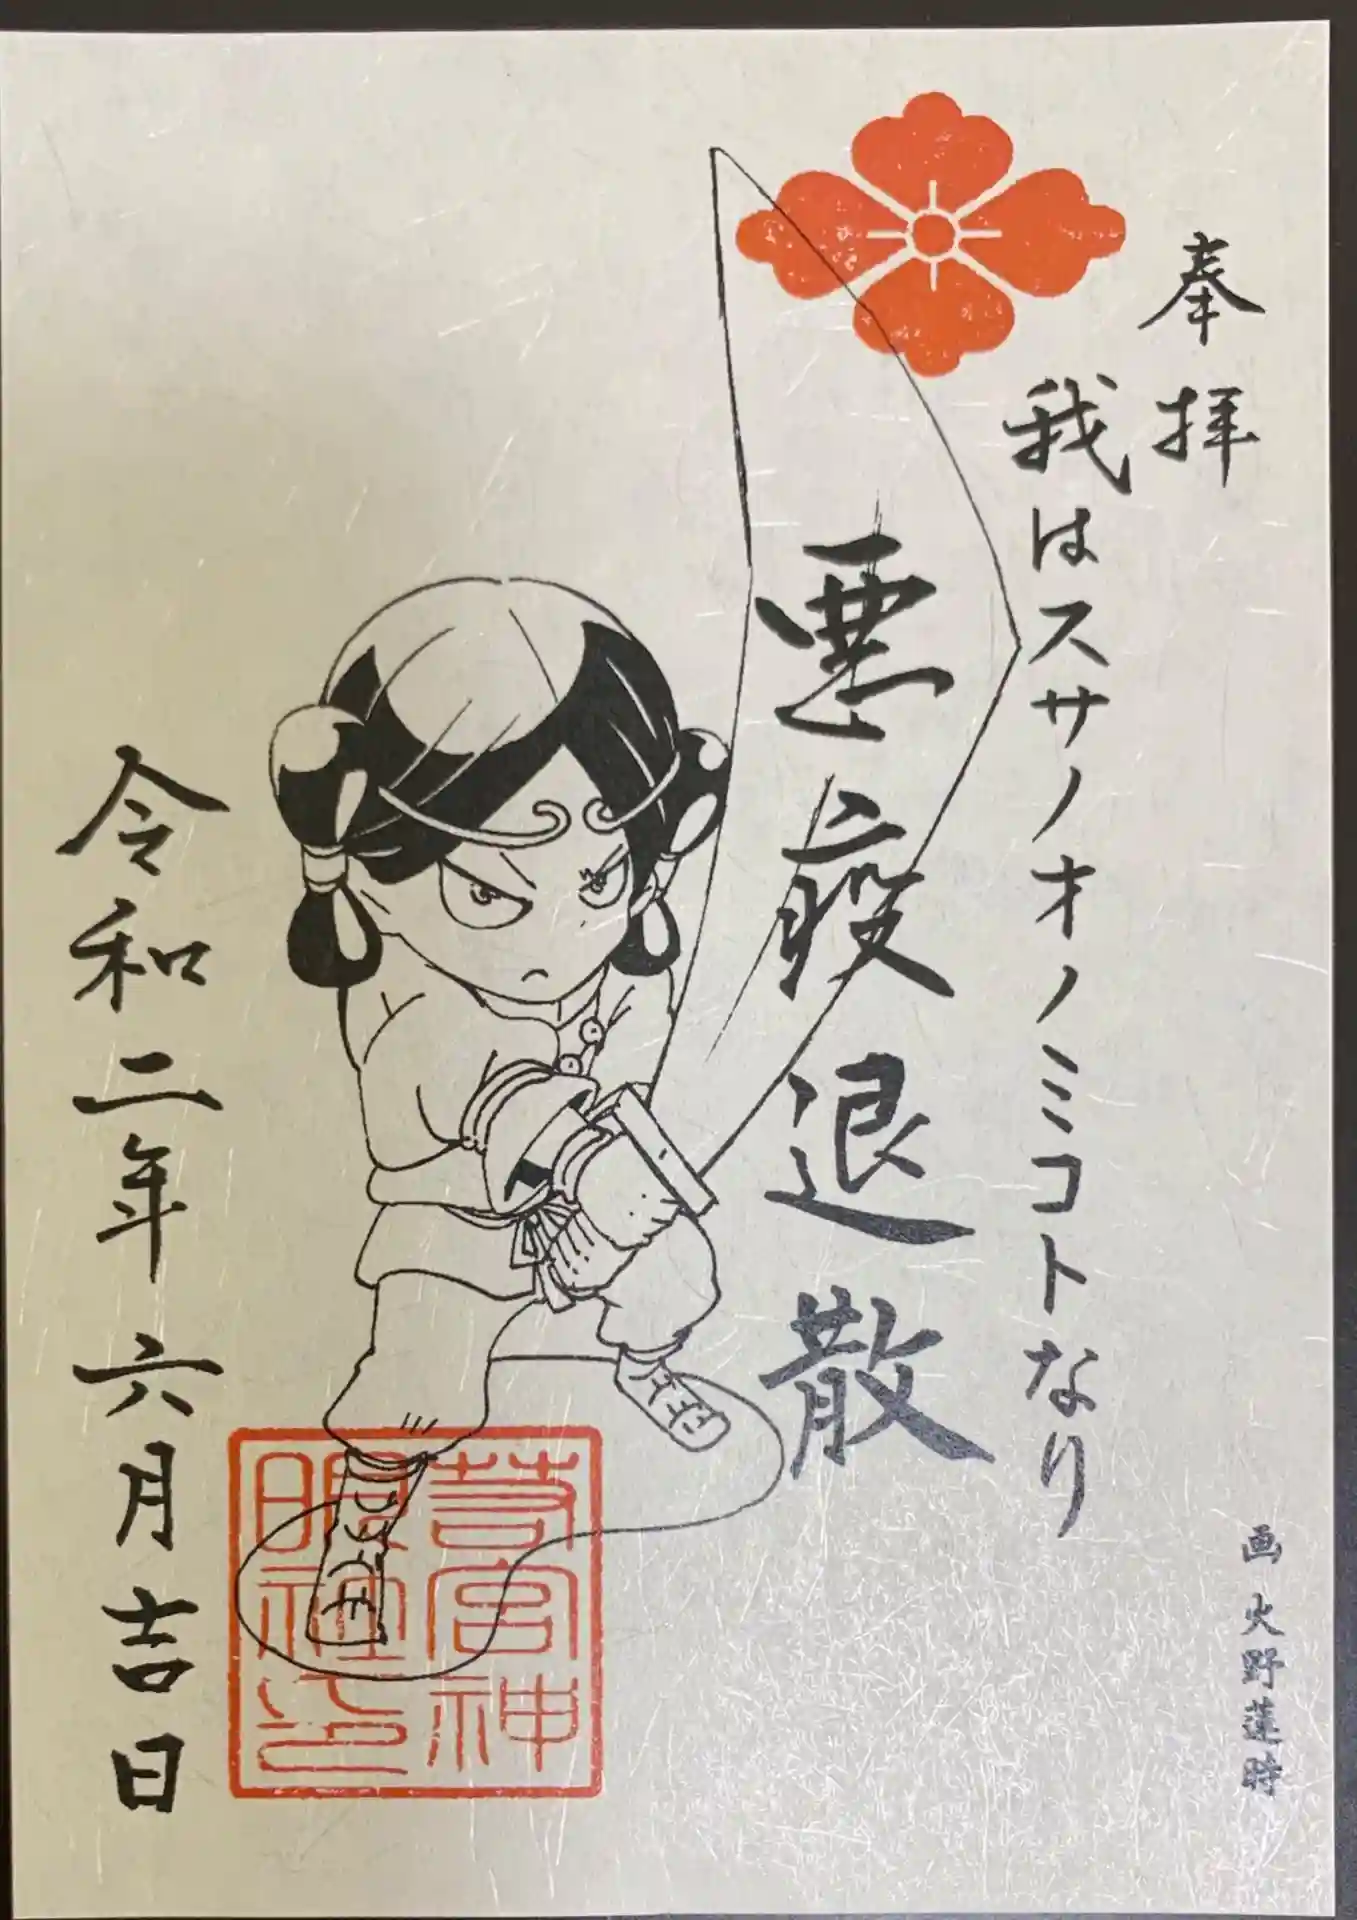 奉拝
我はスサノオノミコトなり
悪疫退散
令和二年六月吉日
芳宮神
明社之印
画 火野蓮時